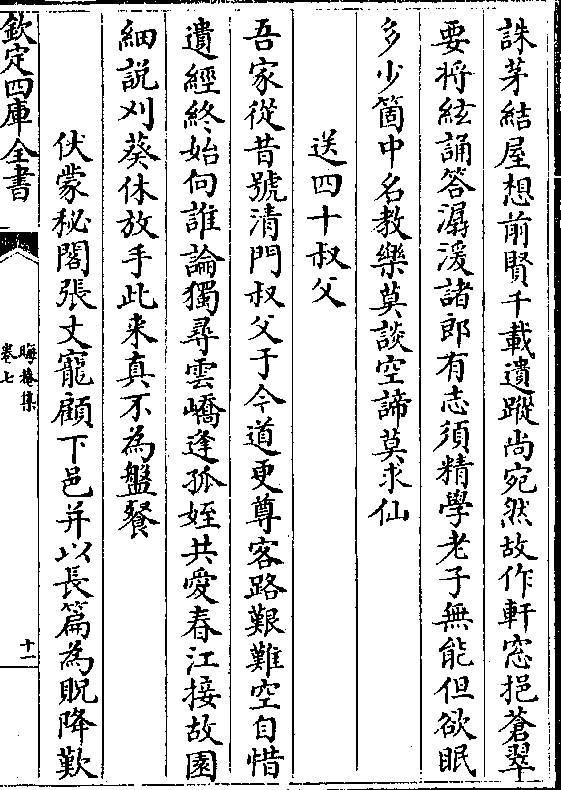 誅茅結屋想前賢千載遺蹤尚宛然故作軒窓挹蒼翠
要将絃誦答潺湲諸郎有志須精學老子無能但欲眠
多少箇中名教樂莫談空諦莫求仙
送四十叔父
吾家從昔號清門叔父于今道更尊客路艱難空自惜
遺經終始向誰論獨尋雲嶠逢孤姪共愛春江接故園
細説刈葵休放手此来真不為盤餐
伏蒙秘閣張丈寵顧下邑并以長篇為貺降歎
欽定四庫全書
晦菴集
卷七
十一